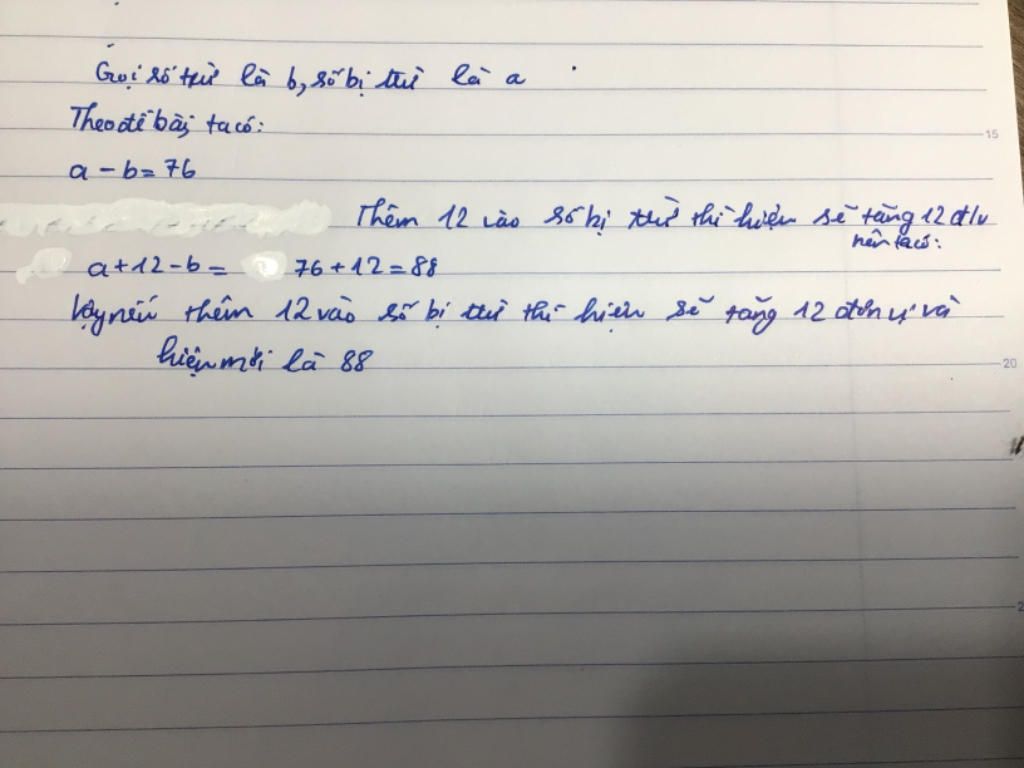 Gọi số trừ là b, số bị trừ là a
15
Theo đề bài, ta có:
a - b = 76
Thêm 12 vào số bị trừ thì hiệu sẽ tăng 12 đ/v
nên ta có:
a + 12 - b = 76 + 12 = 88
Vậy nếu thêm 12 vào số bị trừ thì hiệu sẽ tăng 12 đơn vị và
hiệu mới là 88
20